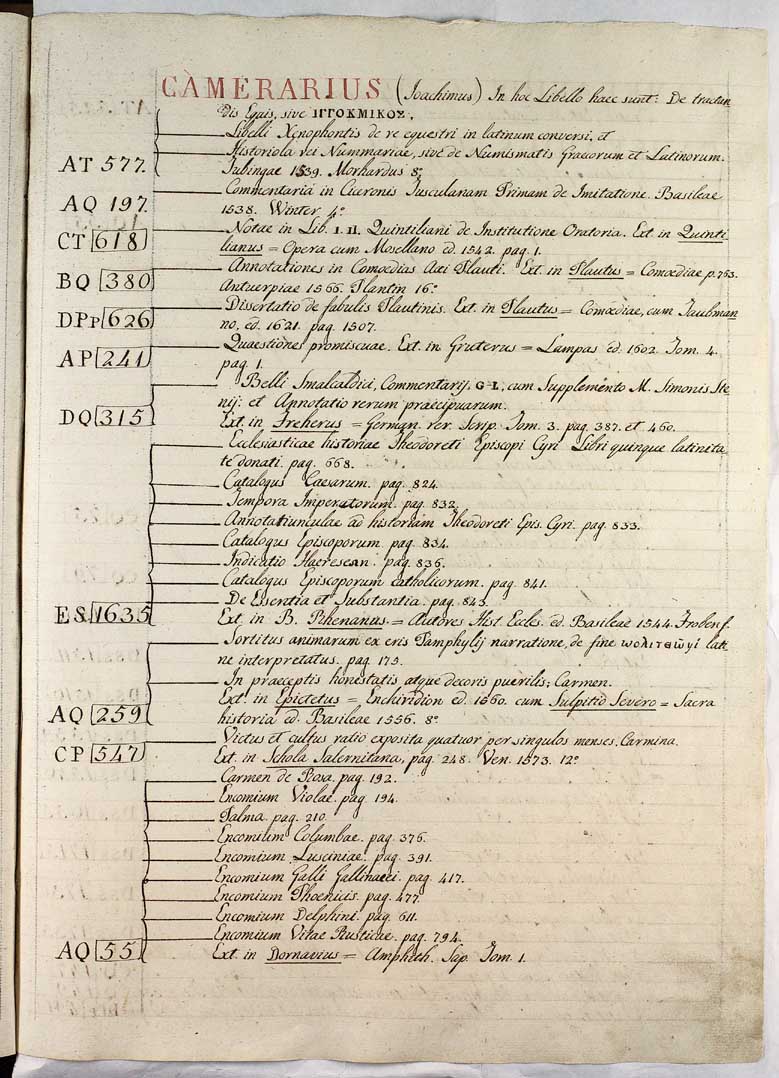 CAMERARIUS (Ioachimus) In hoc Libello haec sunt: De tractan
dis Equis, sive ΙΠΠΟΚΜΙΚΟΣ.
Libelli Xenophontis de re equestri in latinum conversi, et
Historiola rei Nummariae, sive de Numismatis Graecorum et Latinorum.
AT 577. Tubingae 1539. Morhardus 8º
AQ 197. Commentaria in Ciceronis Tusculanam Primam de Imitatione. Basileae
1538. Winter 4º
CT 618 Notae in Lib. I. II. Quintiliani de Institutione Oratoria. Ext in Quinti
lianus = Opera cum Mosellano ed. 1542. pag. 1.
BQ 380 Annotationes in Comoedias Acti Plauti. Ext. in Plautus = Comoediae p. 753.
Antuerpiae 1566. Plantin 16º
DPp 626 Dissertatio de fabulis Plautinis. Ext. in Plautus = Comoediae, cum Taubman
no, ed. 1621. pag. 1507.
AP 241 Quaestiones promiscuae. Ext. in Gruterus = Lampas ed. 1602. Tom. 4.
pag. 1.
Belli Smalcaldici, Commentarij. G-L, cum Supplemento M. Simonis Ste
nij: et Annotatio rerum praecipuarum.
DQ 315 Ext. in Freherus = German. rer. Scrip. Tom. 3. pag. 387. et 460.
Ecclesiasticae historiae Theodoreti Episcopi Cyri Libri quinque latinita
te donati. pag. 668.
Catalogus Caesarum. pag. 824.
Tempora Imperatorum. pag. 832.
Annotatiunculae ad historiam Theodoreti Epis. Cyri. pag. 833.
Catalogus Episcoporum. pag. 834.
Indicatio Haereseωn. pag. 836.
Catalogus Episcoporum catholicorum. pag. 841.
De Essentia et Substantia. pag. 843.
ES 1635 Ext. in B. Rhenanus = Autores Hist. Eccles. ed. Basileae 1544. Froben f.
Sortitus animarum ex eris Pamphylij narratione, de fine lati
ne interpretatus. pag. 175.
In praeceptis honestatis atque decoris puerilis; Carmen.
AQ 259 Ext. in Epictetus = Enchiridion ed. 1560. cum Sulpitio Severo = Sacra
historia ed. Basileae 1556. 8º
CP 547 Victus et cultus ratio exposita quatuor per singulos menses. Carmina.
Ext. in Schola Salernitana, pag. 248. Ven. 1573. 12º
Carmen de Rosa. pag. 192.
Encomium Violae. pag. 194.
Palma. pag. 210.
Encomium Columbae. pag. 376.
Encomium Lusciniae. pag. 391.
Encomium Galli Gallinacei. pag. 417.
Encomium Phoenicis. pag. 477.
Encomium Delphini. pag. 611.
Encomium Vitae Rusticae. pag. 794.
AQ 55 Ext. in Dornavius = Amphith. Sap. Tom. 1.